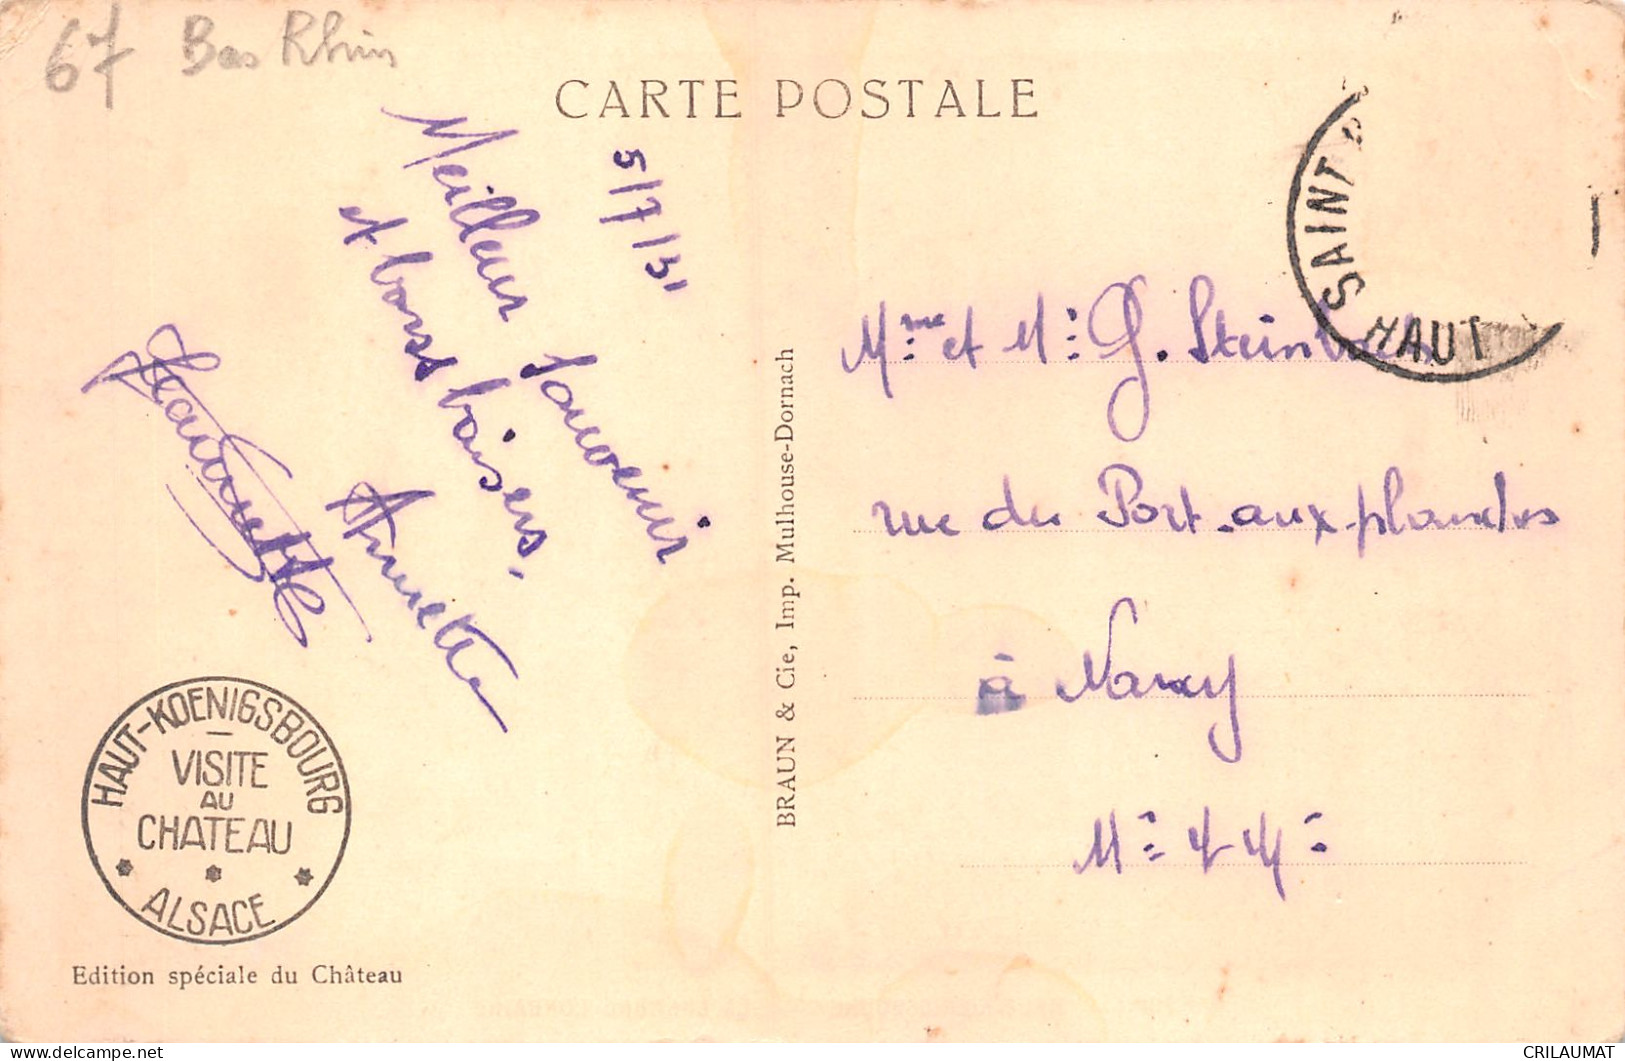 67 Bas Rhin
CARTE POSTALE
5/7/31
Meilleur souvenir
et bons baisers.
Annette
Jeannette
HAUT-KOENIGSBOURG
VISITE
AU
CHATEAU
ALSACE
Edition spéciale du Château
BRAUN & Cie, Imp. Mulhouse-Dornach
SAINT
HAUT
Mme et Mr G.
rue du Port-aux-planches
à Nancy
Mthe et Mlle
CRILAUMAT